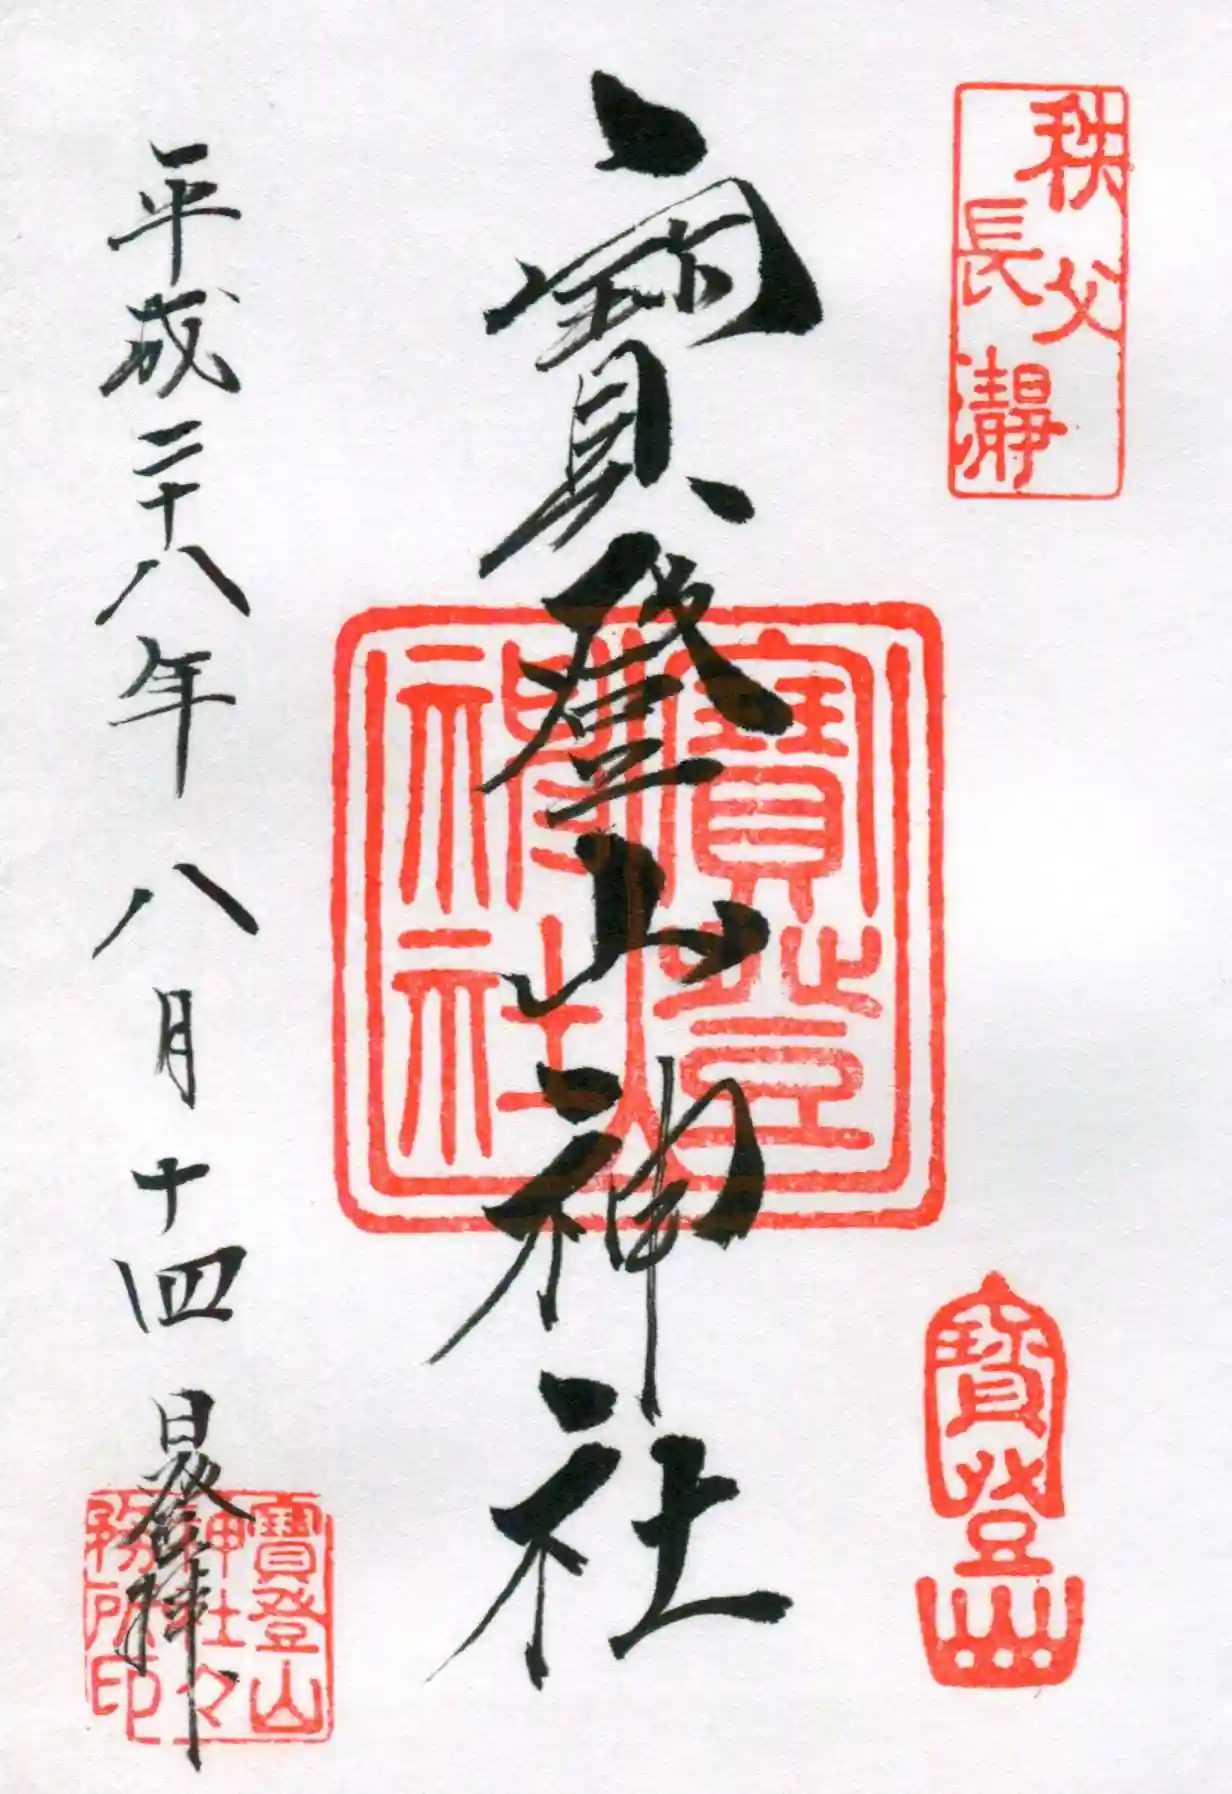 秩父
長瀞
寶登山
寶登山神社
寶登
神社
平成二十八年八月十四日登拝
寶登山
神社々
務所印